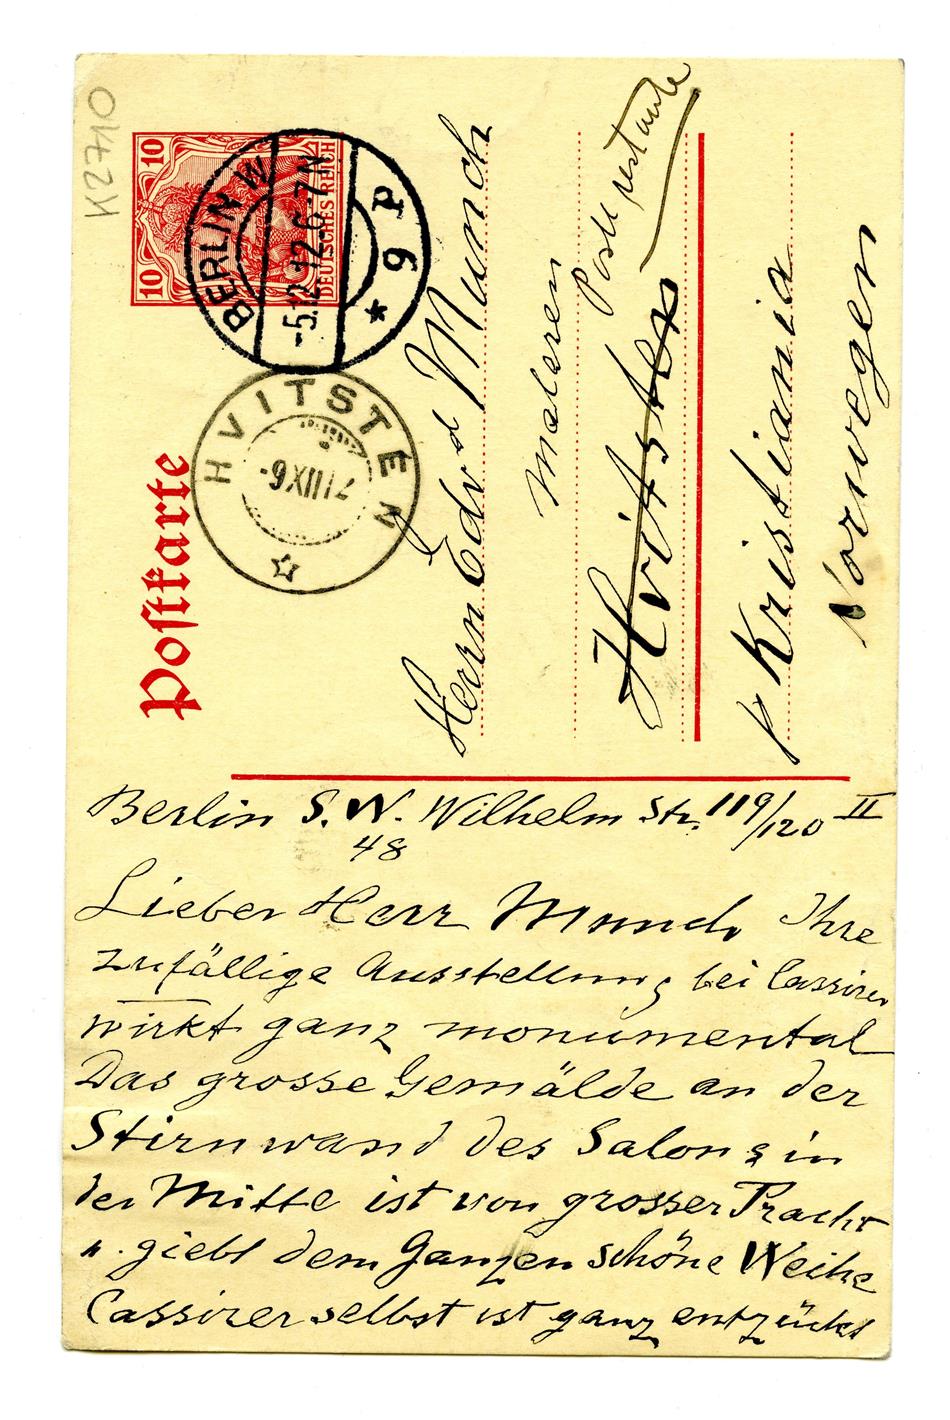 K2710
Postkarte
10 10
DEUTSCHES REICH
BERLIN W
-5.12.12.6-7N
* 9 P
HVITSTEN
7 XII 6-
Herrn Edvd Munch
Maleren
Poste restante
Hvitsten
p Kristiania
Norwegen
Berlin S.W. Wilhelm Str. 119/120 II
48
Lieber Herr Munch Ihre
zufällige Ausstellung bei Cassirer
wirkt ganz monumental
Das grosse Gemälde an der
Stirnwand des Salons in
der Mitte ist von grosser Pracht
u. giebt dem Ganzen schöne Weihe
Cassirer selbst ist ganz entzückt